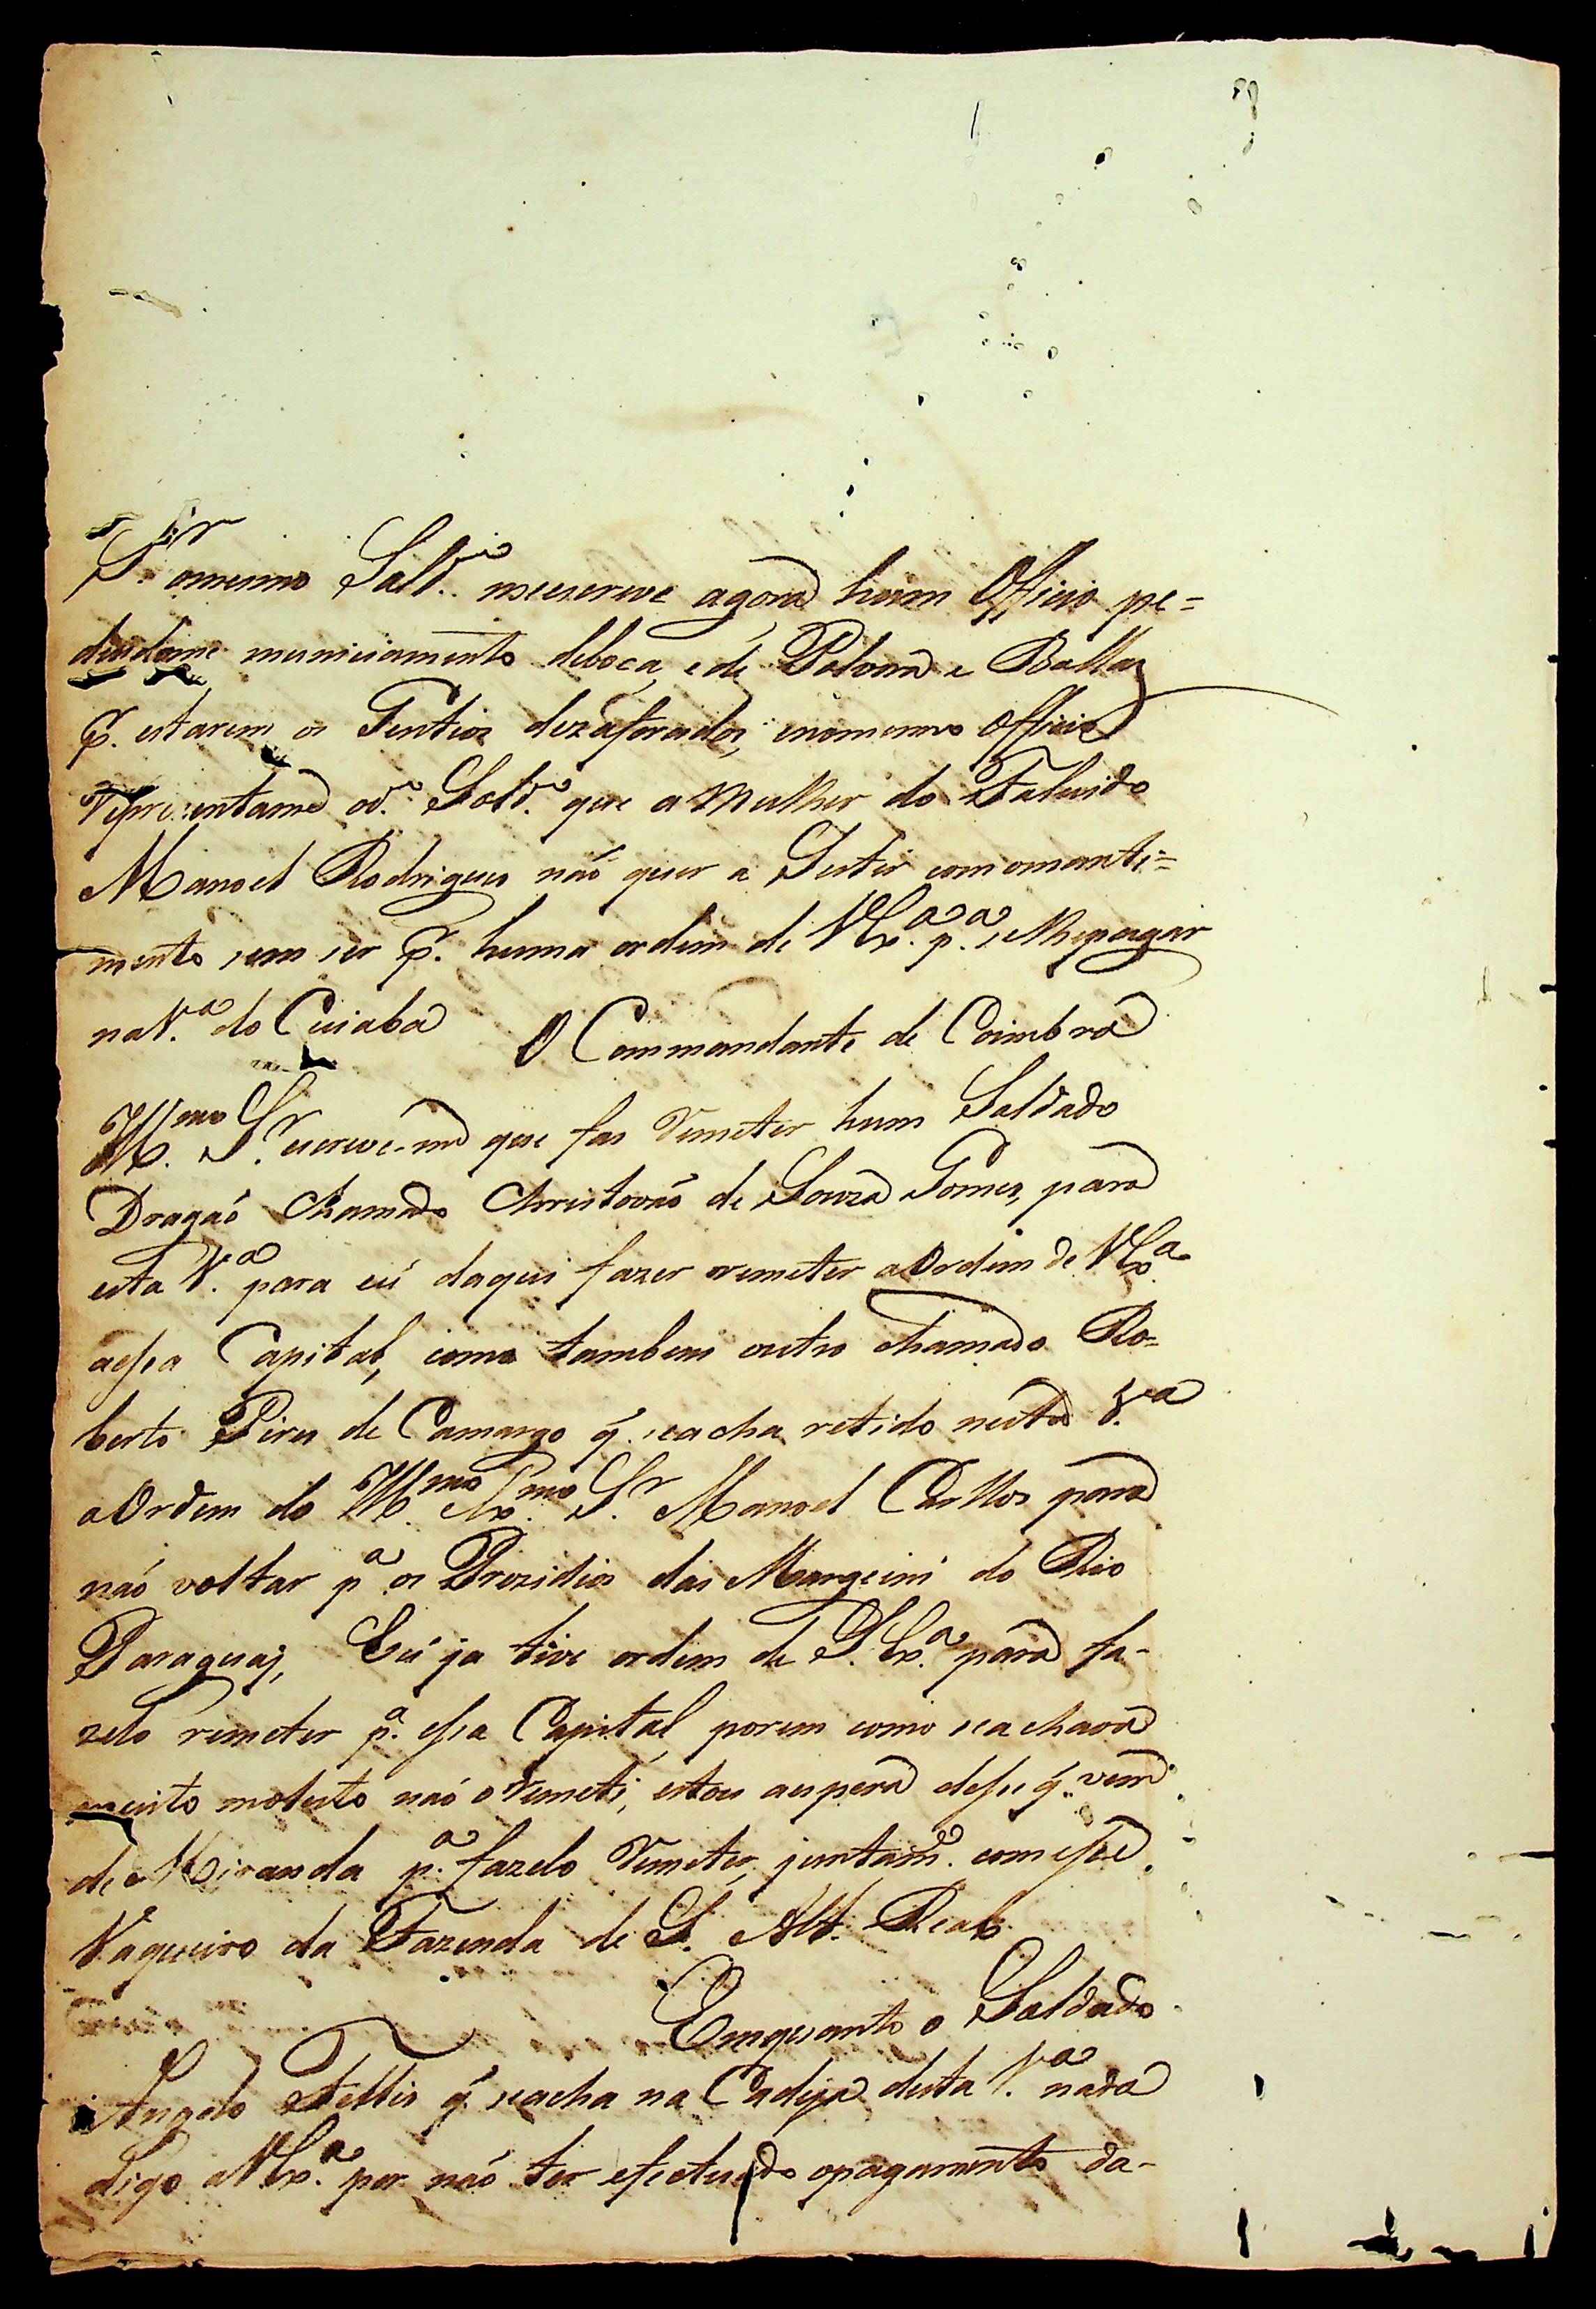 S.ʳ omesmo Sold.º meescreve agora huũm Officio pe=
dindome municiamento deboca, e de Polvora e Ballas
p. estarem os Gentios dezaforados, enomesmo Officio
Reprezentame od.º Sold.º que a Mulher do Falecido
Manoel Rodrigues não quer a Sestir comomanti=
mento sem ser p. huma ordem de VEx.ª p.ª selhepagar
naV.ª do Cuiaba O Commandante de Coimbra
Ill.ᵐᵒ S.ʳ escreve-me que fas Remeter hum Saldado
Dragaõ Chamado Christovaõ de Souza Gomes, para
esta V.ª para eú daqui fazer remeter aOrdem de VEx.ª
aessa Capital, como tambem outro chamado Ro=
berto Pires de Camargo q̃ seacha retido nesta V.ª
aOrdem do Ill.ᵐᵒ Ex.ᵐᵒ S.ʳ Manoel Carllos para
naõ voltar p.ª os Prezidios das Margeins do Rio
Paraguaj, Eú ja tive ordem de S.Ex.ª para fa-
zelo remeter p.ª essa Capital, porem como seachava
muito molesto naõ o Remeti, estou aespera desse q̃ vem
de Miranda p.ª fazelo Remeter, juntam.ᵉ com esse
Vaqueiro da Fazenda de S. Alt. Real
Emquanto o Saldado
Angelo Fellis q̃ seacha na Cadeja desta V.ª nada
digo aVEx.ª por naõ ter efectuado opagamento da-